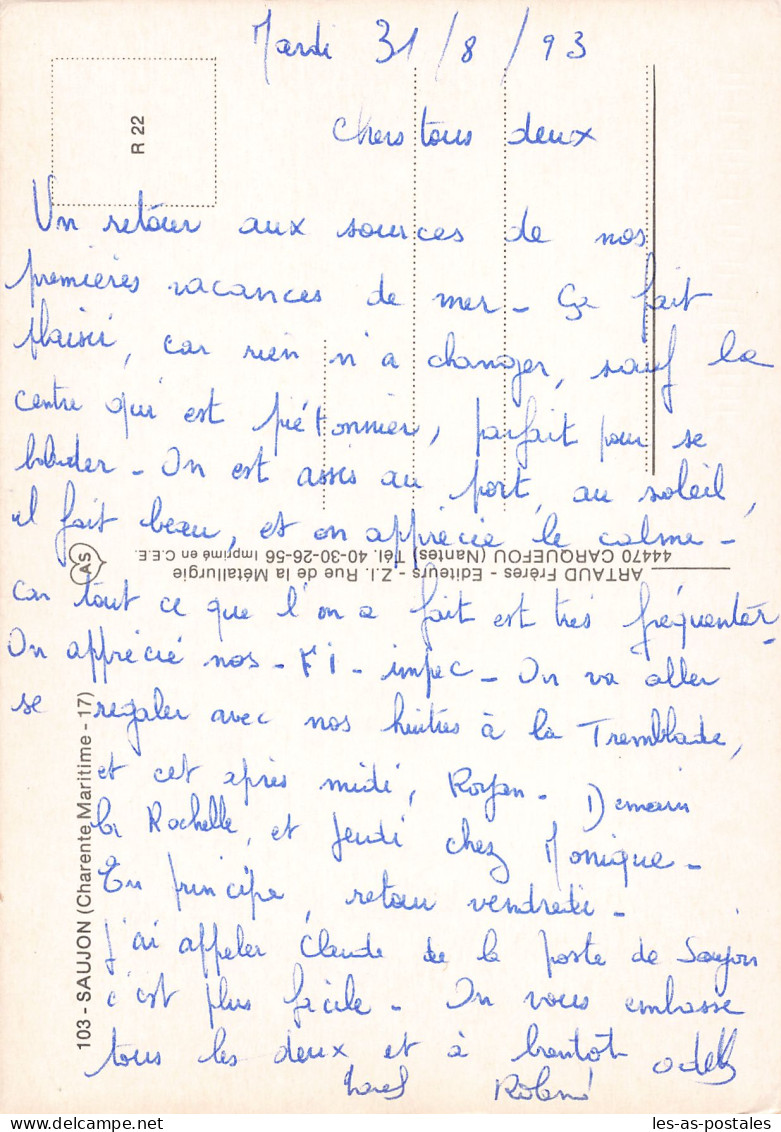 Mardi 31/8/93
R 22
Chers tous deux
Un retour aux sources de nos
premières vacances de mer - Ça fait
plaisir, car rien n'a changer, sauf la
centre qui est piétonnier, parfait pour se
balader - On est assis au port, au soleil,
il fait beau, et on apprécie le calme -
44470 CARQUEFOU (Nantes) Tél. 40-30-26-56 Imprimé en C.E.E.
ARTAUD Frères - Editeurs - Z.I. Rue de la Métallurgie
AS
car tout ce que l'on a fait est très fréquenter
On apprécié nos - F1 - impec - On va aller
se régaler avec nos huitres à la Tremblade,
et cet après midi, Royan - Demain
la Rochelle, et Jeudi chez Monique -
En principe, retour vendredi -
J'ai appeler Claude de la poste de Saujon
c'est plus facile - On vous embrasse
tous les deux et à bientôt
Roland
103 - SAUJON (Charente Maritime - 17)
les-as-postales.com